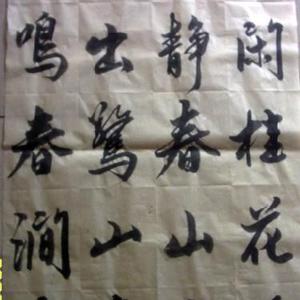 闲桂花
静春山
出驚山
鳴春澗